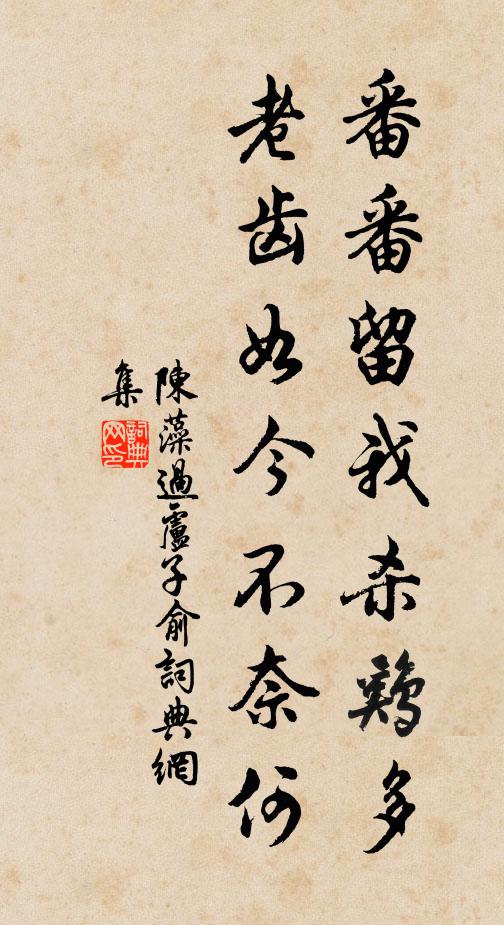 番番留我杀鷄多
老齿如今不奈何
陳藻過盧子俞詞典網
集
詞典
网印